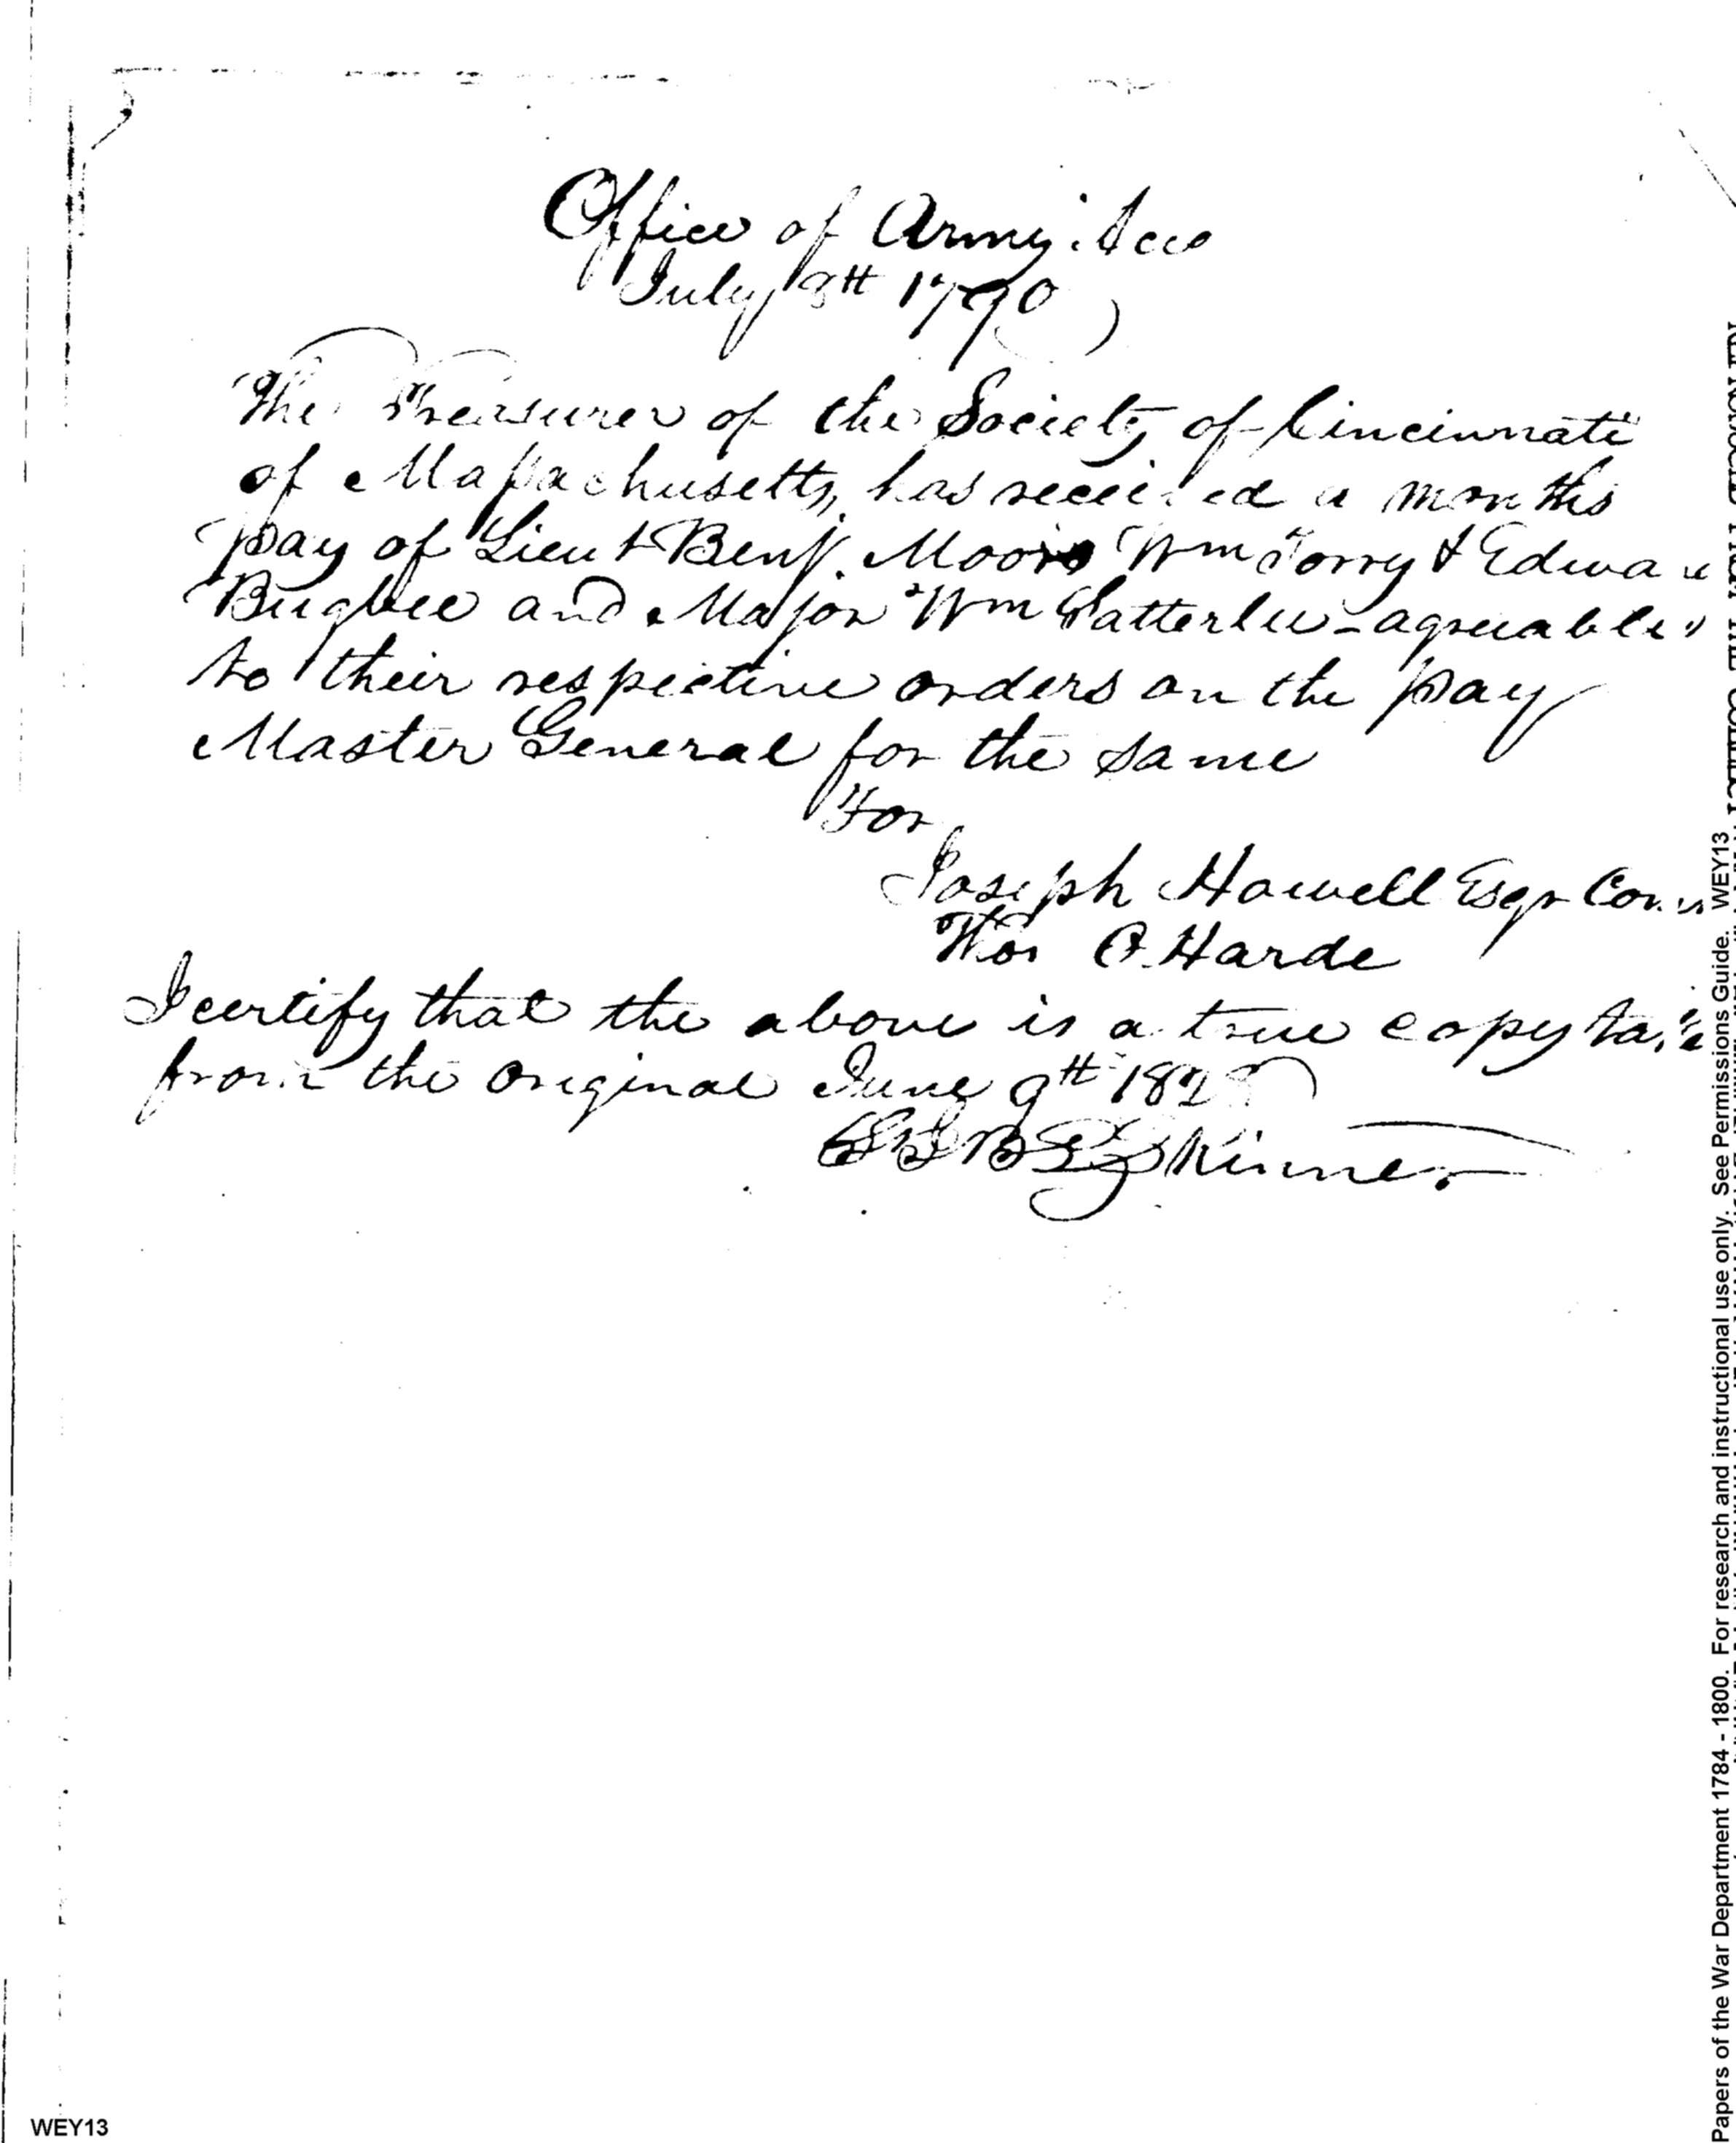 Office of Army Acco
July 8th 1790
The Treasurer of the Society of Cincinnati
of Massachusetts, has received a months
pay of Lieut Benj. Moors Wm Torry & Edwa
Bugbee and Major Wm Satterlee - agreeable
to their respective orders on the pay
Master General for the same
For
Joseph Howell Esqr Com
Thos O. Harde
I certify that the above is a true copy
from the original June 9th
Skinner
Papers of the War Department 1784 - 1800. For research and instructional use only. See Permissions Guide. WEY13
WEY13